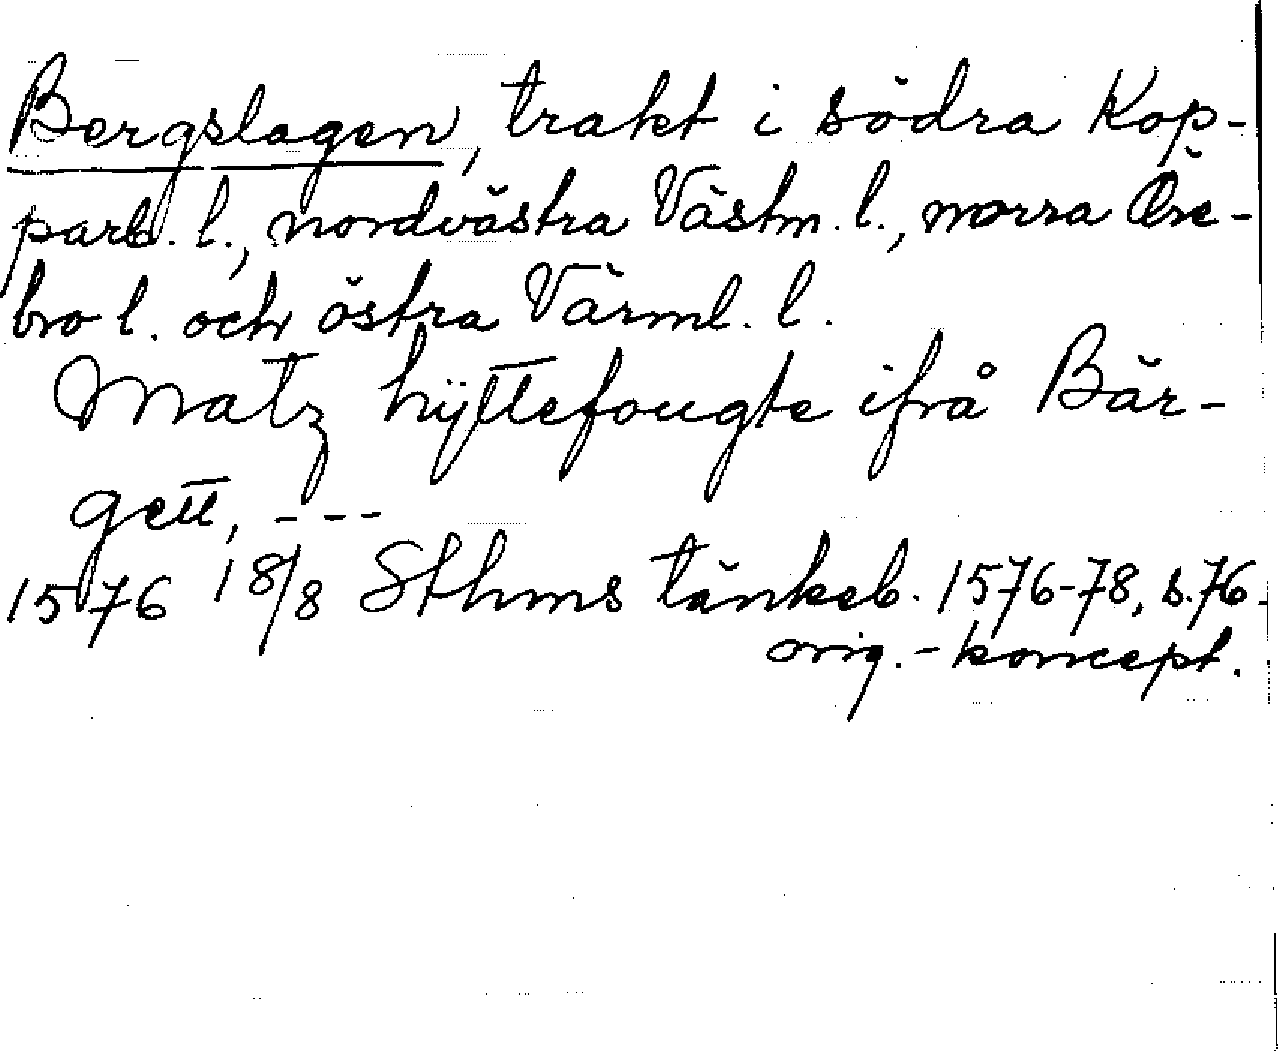 Bergslagen, trakt i södra Kop-
parb. l., nordvästra Västm. l., norra Öre-
bro l. och östra Värml. l.
Matz hÿttefougte ifrå Bär-
gett, ---
1576 18/8 Sthms tänkeb. 1576-78, s. 76.
orig.-koncept.